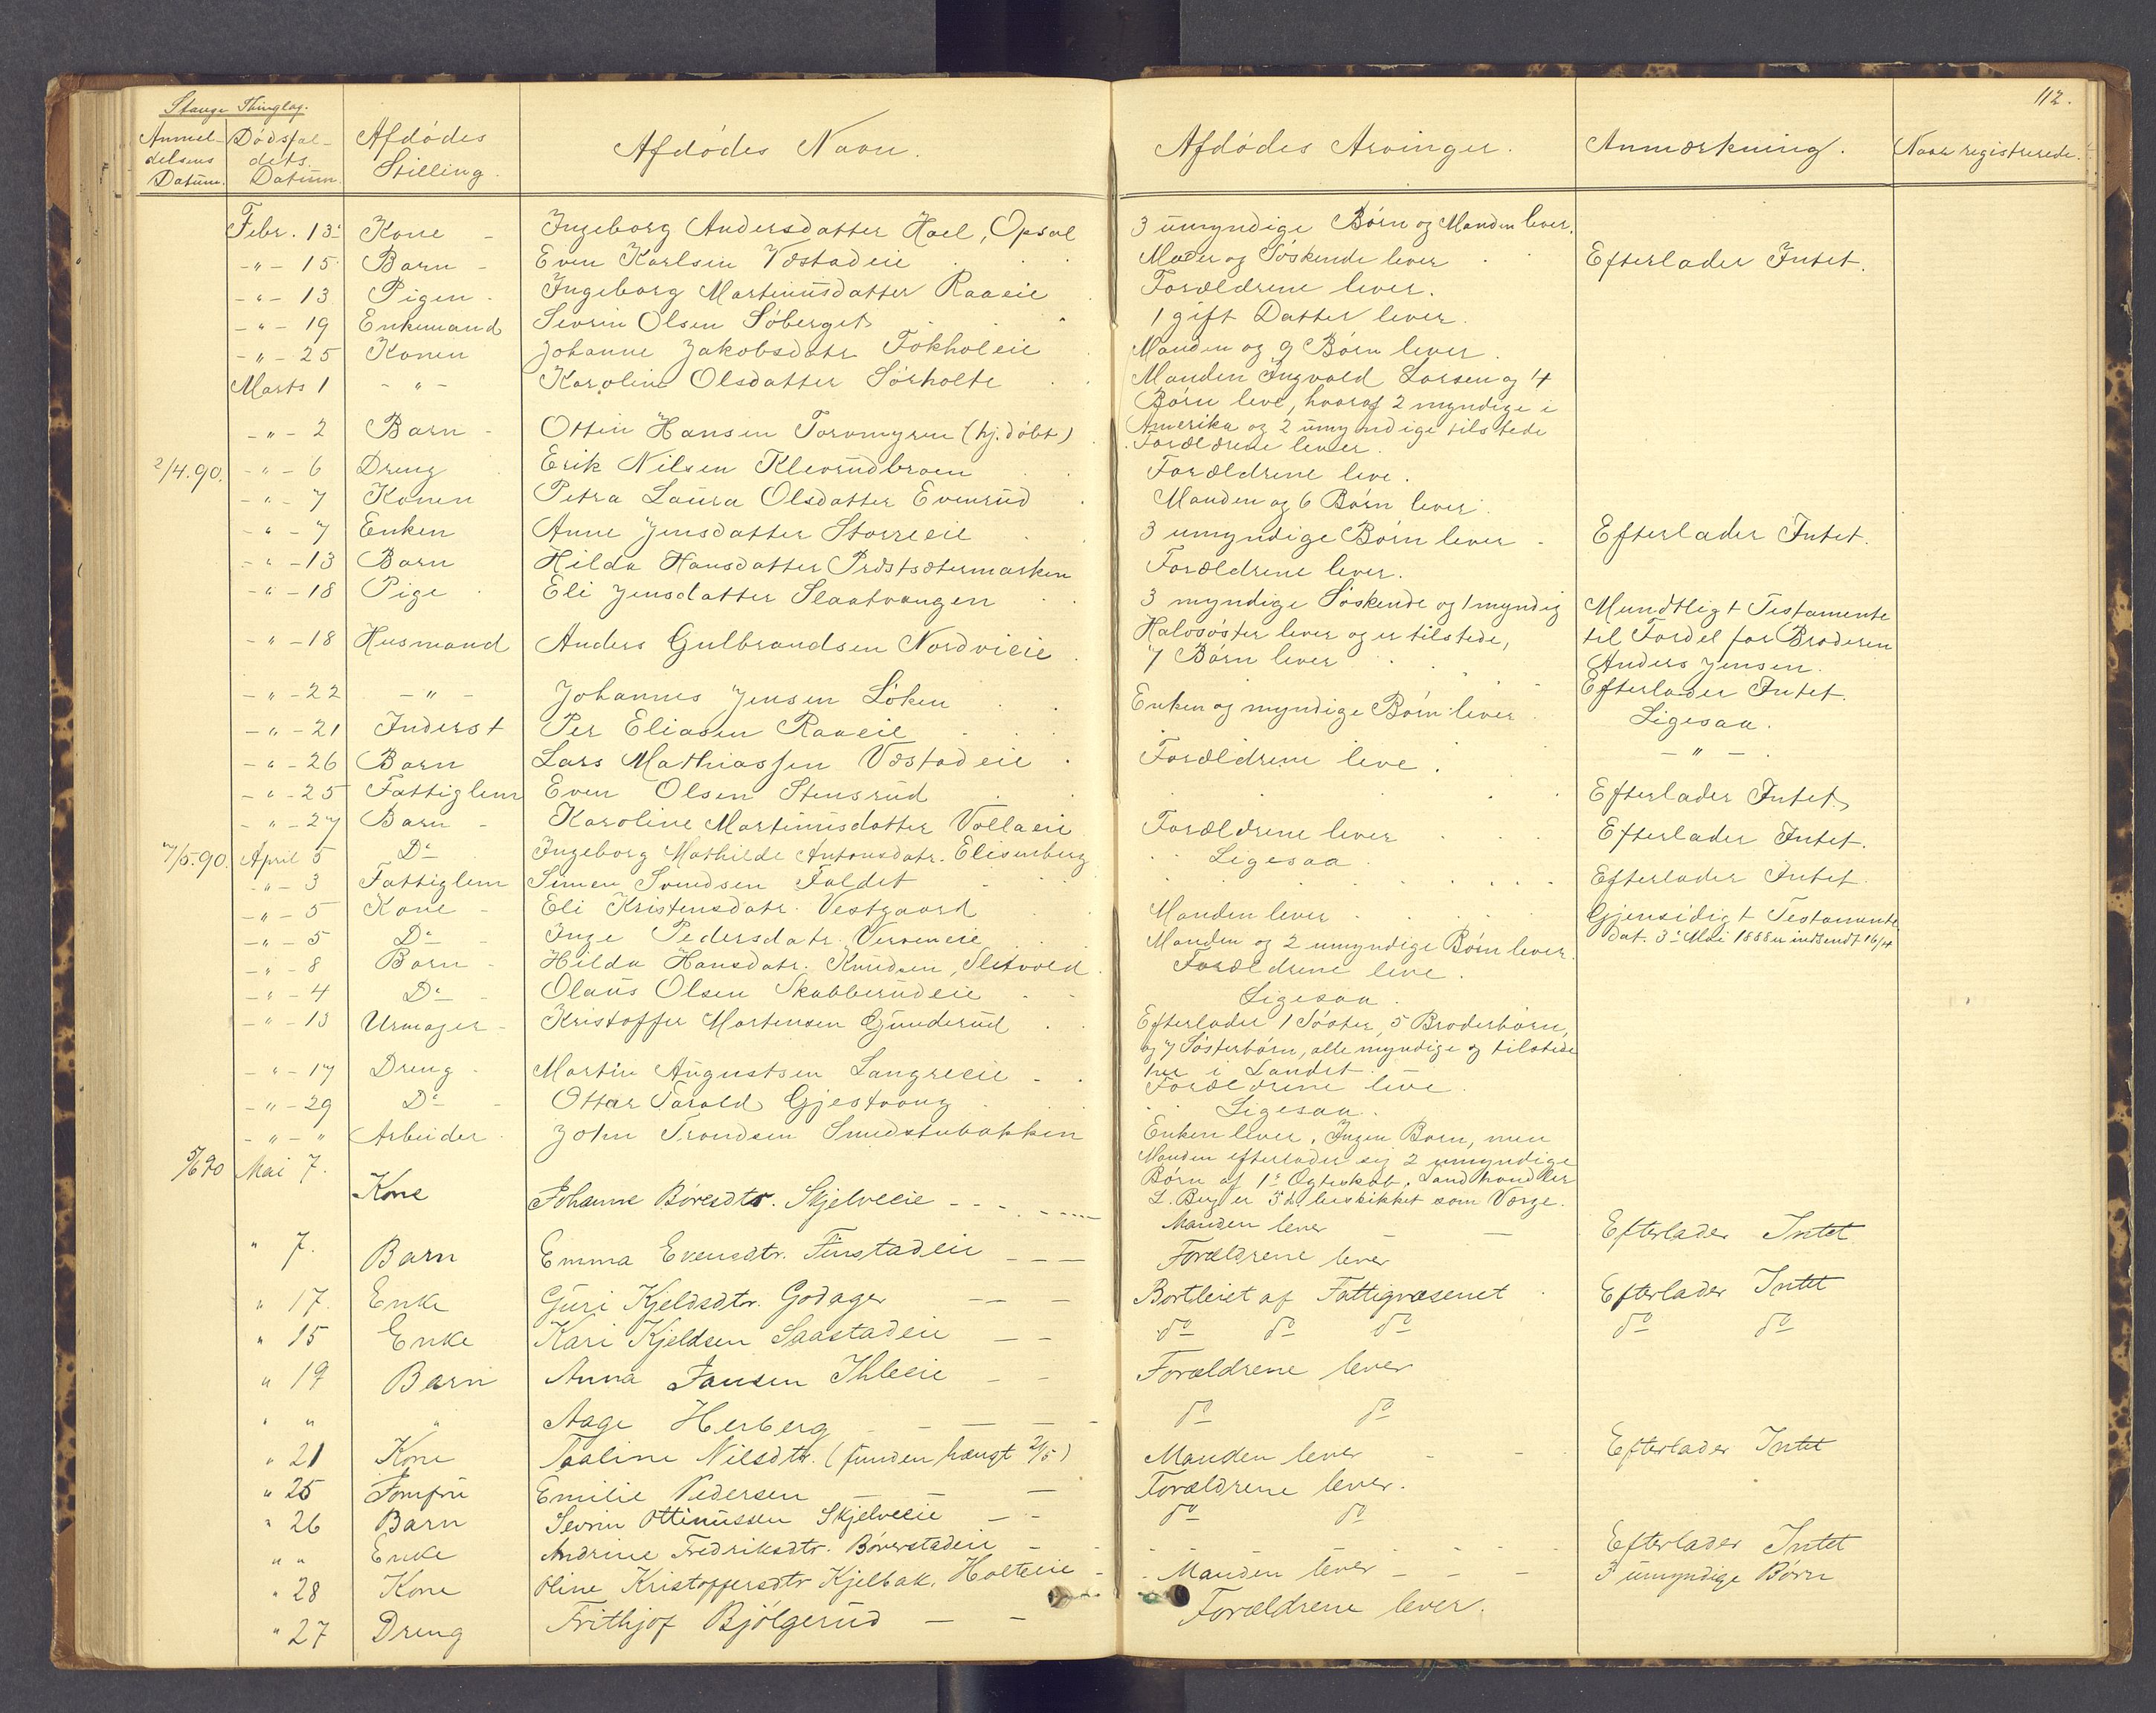 112.
Stange Thinglag.
Anmeldelsens Datum. Dødsfaldets Datum. Afdødes Stilling. Afdødes Navn. Afdødes Arvinger. Anmærkning. Naar registrerede.
Febr. 13. Kone - Ingeborg Andersdatter Hoel, Opsal 3 umyndige Børn og Manden lever.
-"- 15 Barn - Even Karlsen Vestadeie Moder og Søskende lever Efterlader Intet.
-"- 13 Pigen - Ingeborg Martinusdatter Raaeie Forældrene lever.
-"- 19 Enkemand Sevrin Olsen Søberget 1 gift Datter lever.
-"- 25 Konen Johanne Jakobsdatr Fokholeie Manden og 9 Børn lever.
Marts 1 -"- Karoline Olsdatter Sørholte Manden Ingvald Larsen og 4
Børn leve, hvoraf 2 myndige i
Amerika og 2 umyndige tilstede
-"- 2 Barn - Ottin Hansen Torvmyren (hj. døbt) Forældrene lever.
2/4.90. -"- 6 Dreng Erik Nilsen Klevrudbroen Forældrene leve.
-"- 7 Konen Petra Laura Olsdatter Evenrud Manden og 6 Børn lever.
-"- 7 Enken Anne Jensdatter Storreeie 3 umyndige Børn lever - Efterlader Intet.
-"- 13 Barn Hilda Hansdatter Præstsætermarken Forældrene lever.
-"- 18 Pige Eli Jensdatter Slaatvangen 3 myndige Søskende og 1 myndig Mundtligt Testamente
Halvsøster lever og er tilstede, til Fordel for Broderen
Anders Jensen.
-"- 18 Husmand Anders Gulbrandsen Nordvieie 7 Børn lever Efterlader Intet.
-"- 22 -"- Johannes Jensen Løken Enken og myndige Børn lever Ligesaa.
-"- 21 Inderst Per Eliasen Raaeie -"-
-"- 26 Barn Lars Mathiassen Vestadeie Forældrene leve.
-"- 25 Fattiglem Even Olsen Stensrud Efterlader Intet
-"- 27 Barn - Karoline Martinusdatter Vollaeie Forældrene lever Efterlader Intet.
7/5.90. April 5 Do Ingeborg Mathilde Antonsdatr. Elisenberg Ligesaa.
-"- 3 Fattiglem Simen Svendsen Faldet Efterlader Intet.
-"- 5 Kone - Eli Kristensdatr. Vestgaard Manden lever Gjensidigt Testamente
dat. 3. Mai 1888 er indsendt 16/4
-"- 5 Do - Inge Pedersdatr. Ververeie Manden og 2 umyndige Børn lever.
-"- 8 Barn - Hilda Hansdatr. Knudsen, Sletvold Forældrene leve.
-"- 4 Do - Olaus Olsen Skabberudeie Ligesaa.
-"- 13 Urmager - Kristoffer Mortensen Gunderud Efterlader 1 Søster, 5 Broderbørn,
og 7 Søsterbørn, alle myndige og tilstede
her i Landet.
-"- 17 Dreng - Martin Augustsen Langreeie Forældrene leve.
-"- 29 Do - Ottar Farald Gjestvang Ligesaa.
-"-" Arbeider - John Trondsen Smedstubakken Enken lever. Ingen Børn, men
Manden efterlader sig 2 umyndige
Børn af 1. Ægteskab. Landhandler
L. Berg er beskikket som Værge.
5/6 90 Mai 7. Kone Johanne Børesdtr. Skjelveeie Manden lever Efterlader Intet
" 7. Barn Emma Evensdtr. Finstadeie Forældrene lever
" 17. Enke Guri Kjeldsdtr. Godager Bortleiet af Fattigvæsenet Efterlader Intet
" 15 Enke Kari Kjeldsen Saastadeie do do do do do
" 19 Barn Anna Jansen Ihleeie Forældrene lever
" " " Aage Herberg do do
" 21 Kone Paaline Nilsdtr. (funden hængt 21/5) Manden lever Efterlader Intet
" 25 Jomfru Emilie Pedersen Forældrene lever.
" 26 Barn Sevrin Ottinussen Skjelveeie do do
" " Enke Andrine Fredriksdtr. Børverstadeie Efterlader Intet
" 28 Kone Oline Kristoffersdtr Kjelbak, Holteeie Manden lever 3 umyndige Børn
" 27 Dreng Frithjof Bjølgerud Forældrene lever.